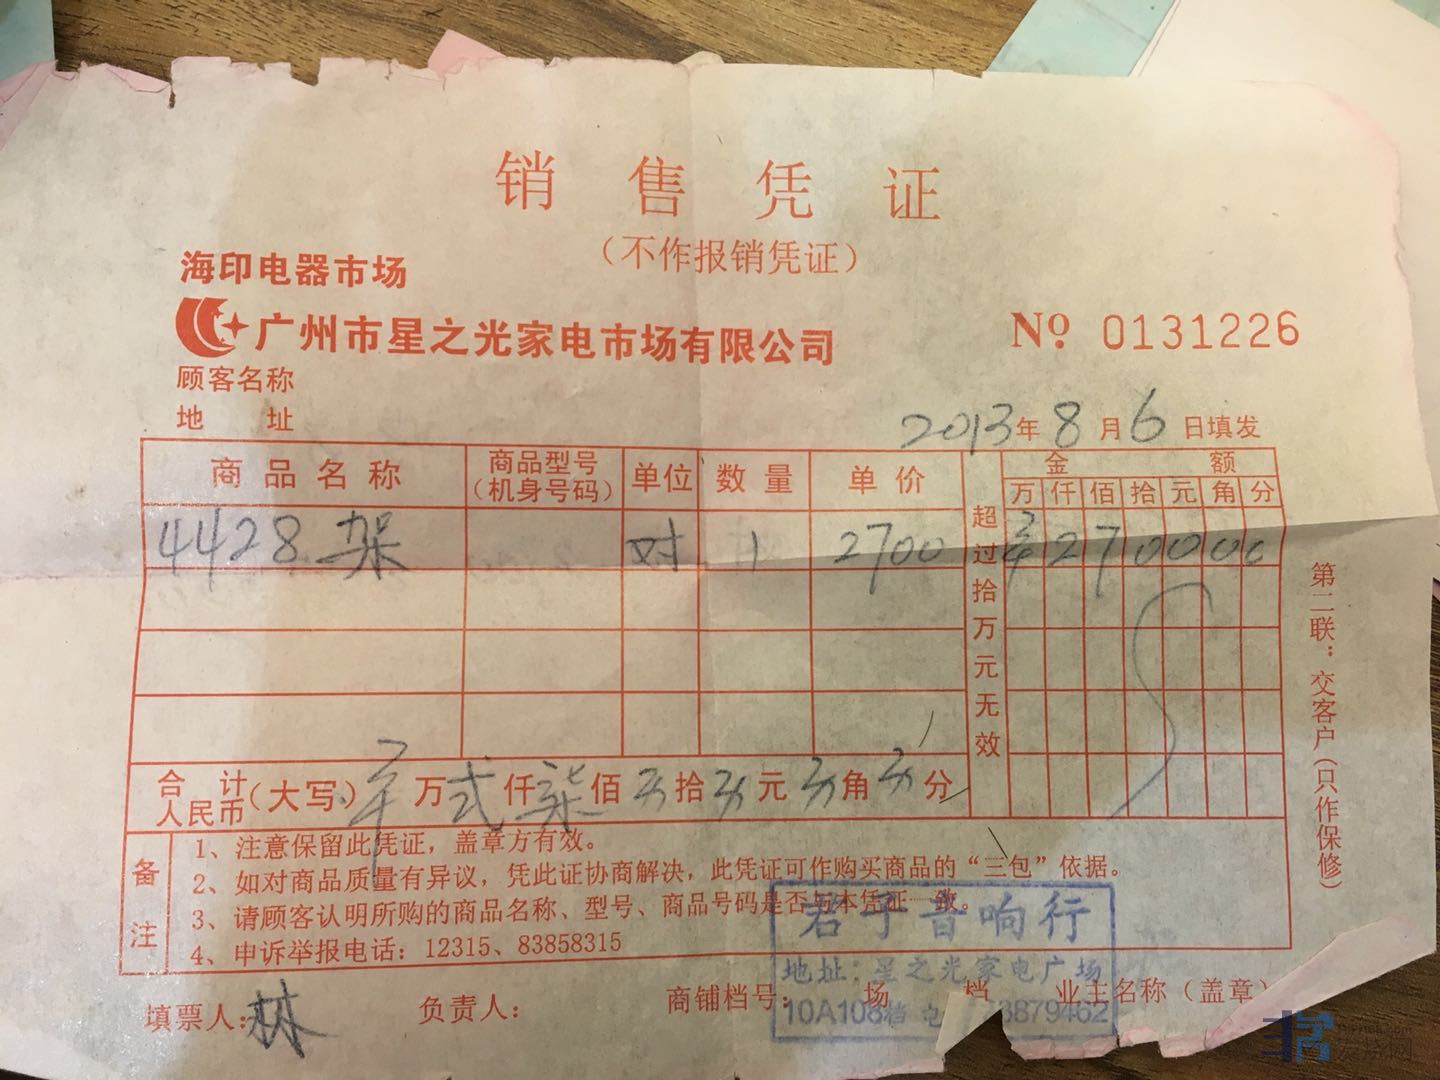 销售凭证
（不作报销凭证）
海印电器市场
广州市星之光家电市场有限公司
No 0131226
顾客名称
地 址
2013年8月6日填发
商品名称 商品型号（机身号码） 单位 数量 单价 超过拾万元无效 金额 万仟佰拾元角分
4428架 对 1 2700 ¥270000
合计人民币（大写） 万弍仟柒佰 拾 元 角 分
备注
1、注意保留此凭证，盖章方有效。
2、如对商品质量有异议，凭此证协商解决，此凭证可作购买商品的“三包”依据。
3、请顾客认明所购的商品名称、型号、商品号码是否与本凭证一致。
4、申诉举报电话：12315、83858315
填票人：林 负责人： 商铺档号： 场 档 业主名称（盖章）
第二联：交客户（只作保修）
君子音响行
地址：星之光家电广场
10A108档 电 3879462
发烧网